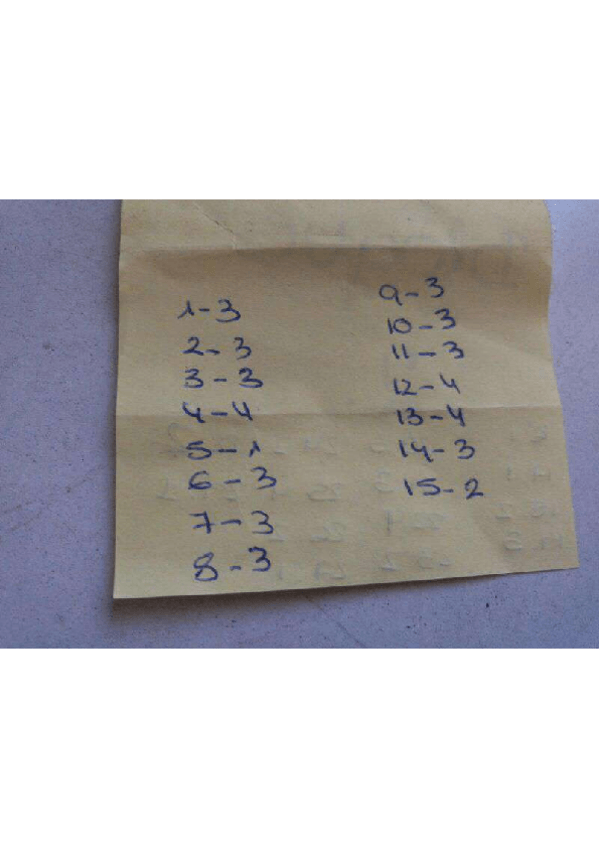 1-3
2-3
3-3
4-4
5-1
6-3
7-3
8-3
9-3
10-3
11-3
12-4
13-4
14-3
15-2